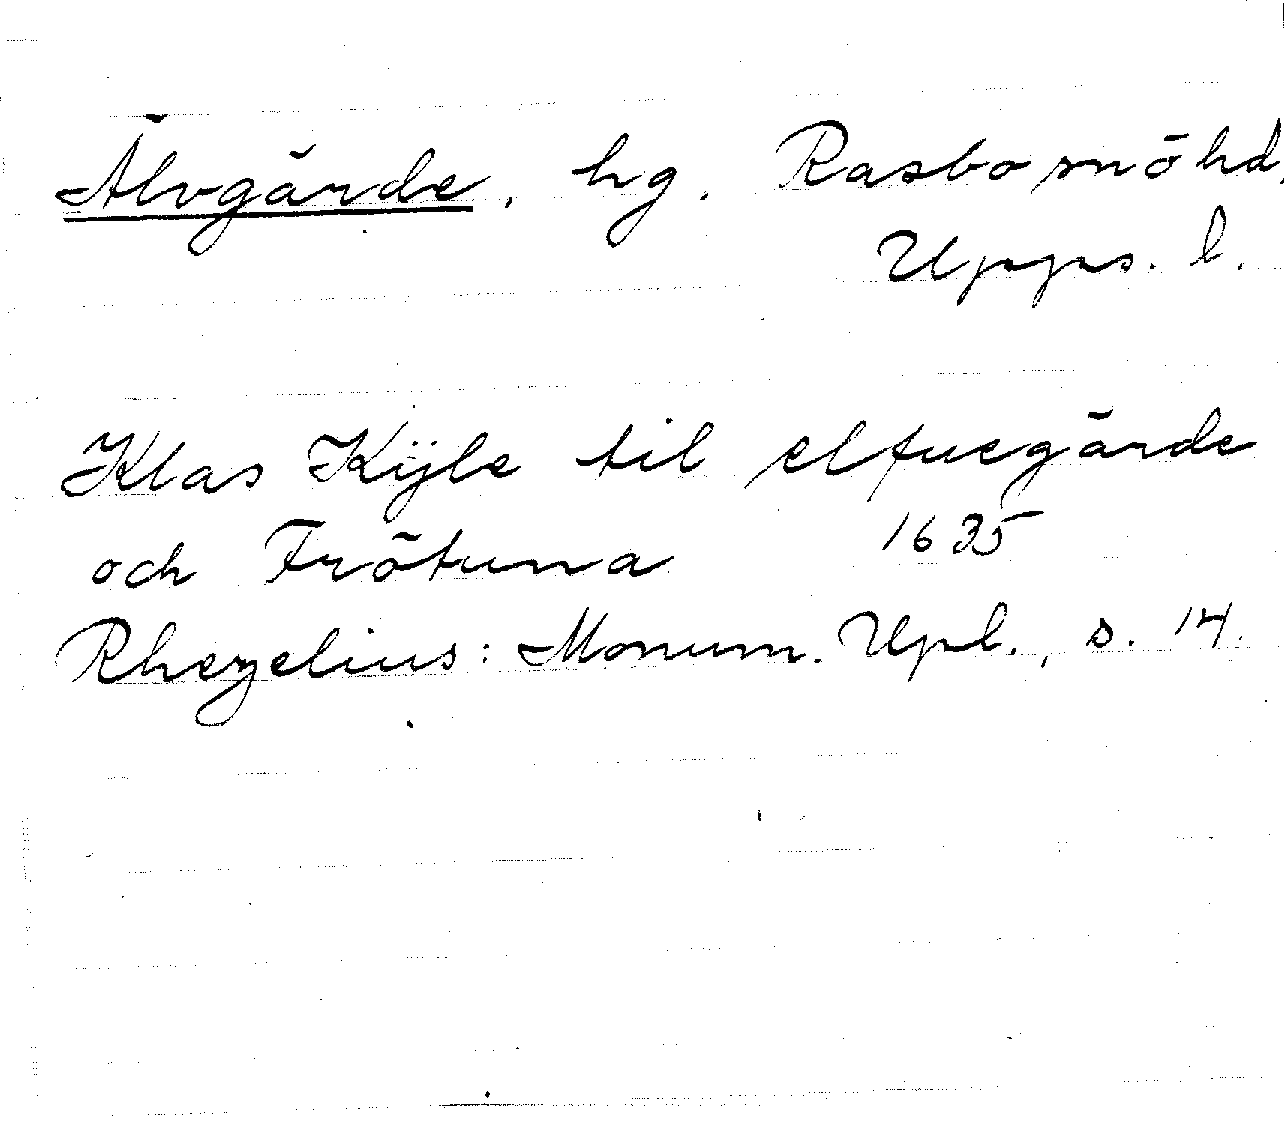 Älvgärde, hg. Rasbo snöhd,
Upps. l.
Klas Kijle til elfuegärde
och Frötuna 1635
Rhezelius: Monum. Upl., s. 14.